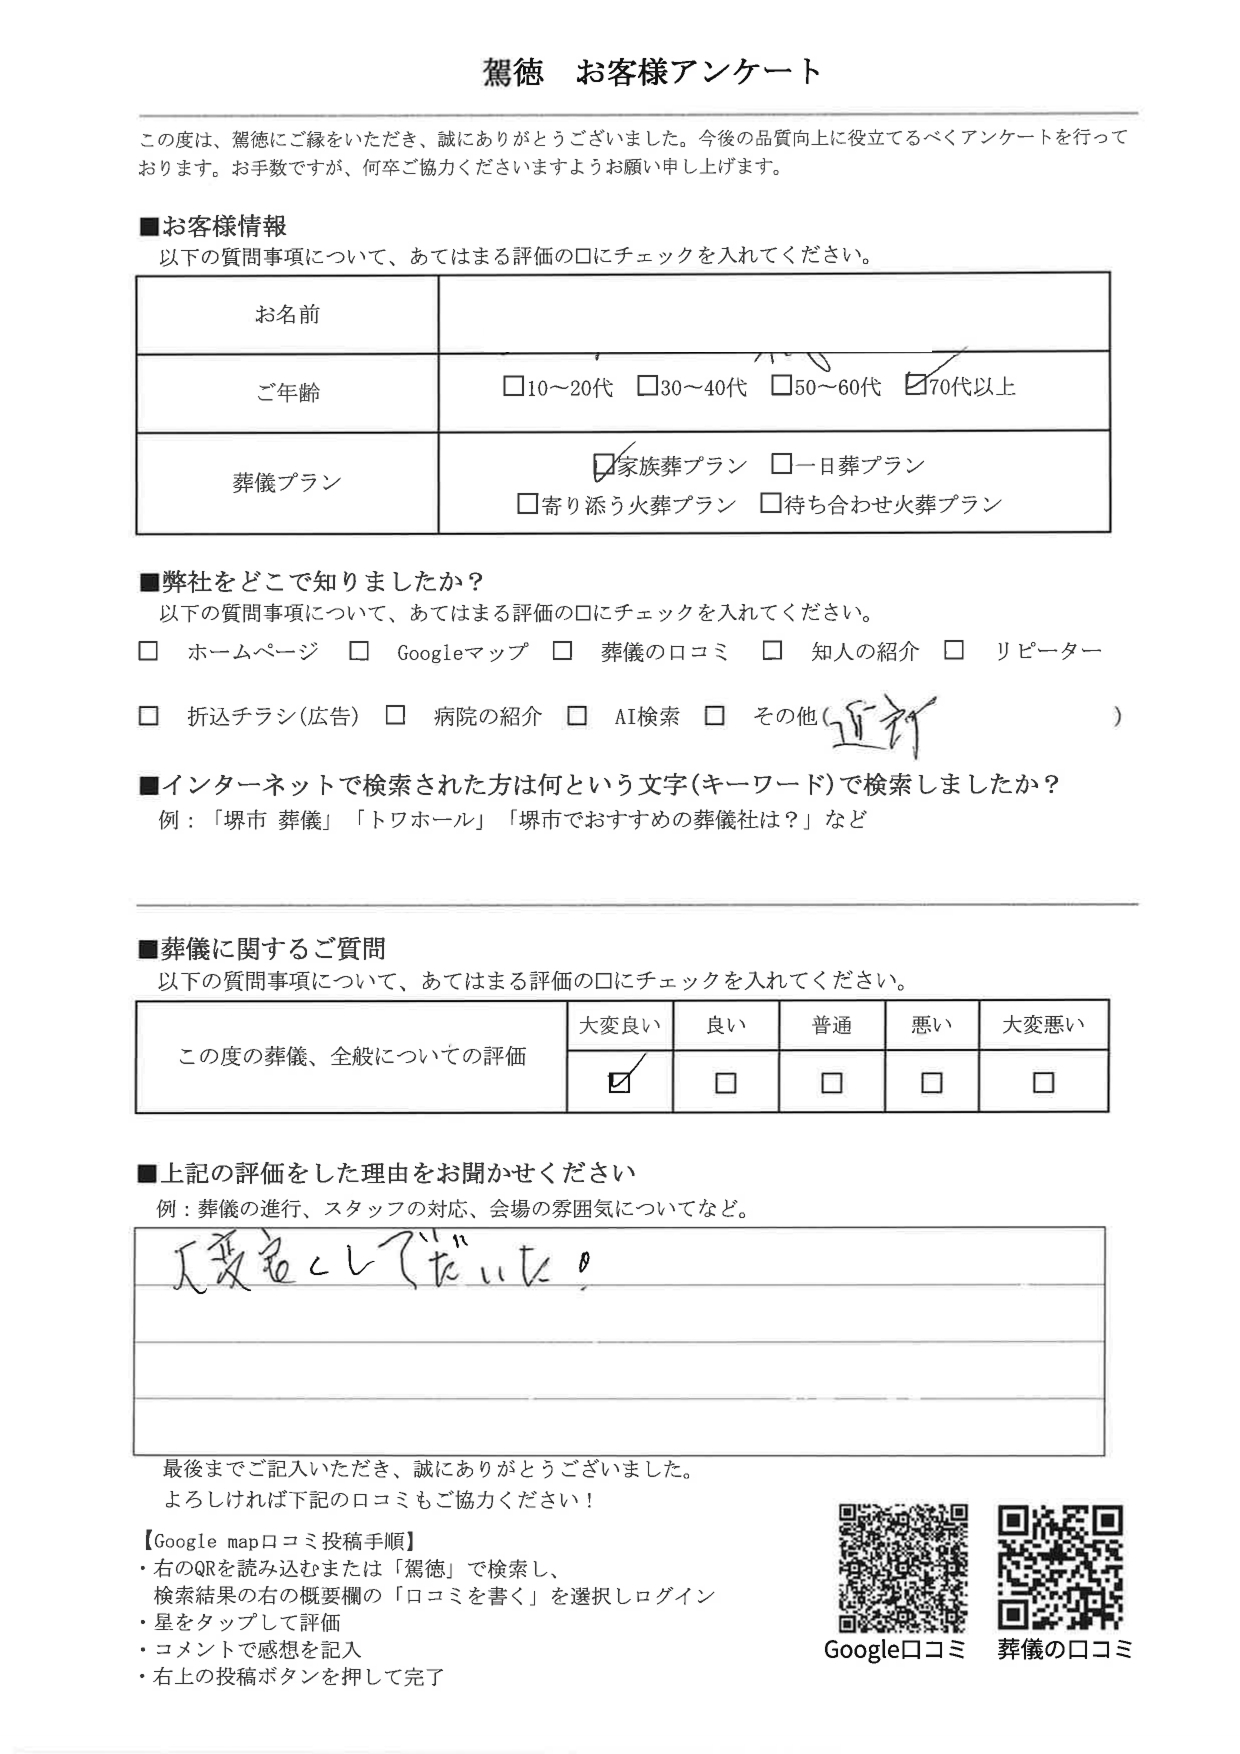 駕徳 お客様アンケート
この度は、駕徳にご縁をいただき、誠にありがとうございました。今後の品質向上に役立てるべくアンケートを行って
おります。お手数ですが、何卒ご協力くださいますようお願い申し上げます。
■お客様情報
以下の質問事項について、あてはまる評価の口にチェックを入れてください。
お名前
ご年齢
□10～20代 □30～40代 □50～60代 ☑70代以上
葬儀プラン
☑家族葬プラン □一日葬プラン
□寄り添う火葬プラン □待ち合わせ火葬プラン
■弊社をどこで知りましたか？
以下の質問事項について、あてはまる評価の口にチェックを入れてください。
□ ホームページ □ Googleマップ □ 葬儀の口コミ □ 知人の紹介 □ リピーター
□ 折込チラシ(広告) □ 病院の紹介 □ AI検索 □ その他(近所)
■インターネットで検索された方は何という文字(キーワード)で検索しましたか？
例：「堺市 葬儀」「トワホール」「堺市でおすすめの葬儀社は？」など
■葬儀に関するご質問
以下の質問事項について、あてはまる評価の口にチェックを入れてください。
この度の葬儀、全般についての評価
大変良い 良い 普通 悪い 大変悪い
☑ □ □ □ □
■上記の評価をした理由をお聞かせください
例：葬儀の進行、スタッフの対応、会場の雰囲気についてなど。
大変良くしてだいた。
最後までご記入いただき、誠にありがとうございました。
よろしければ下記の口コミもご協力ください！
【Google map口コミ投稿手順】
・右のQRを読み込むまたは「駕徳」で検索し、
検索結果の右の概要欄の「口コミを書く」を選択しログイン
・星をタップして評価
・コメントで感想を記入
・右上の投稿ボタンを押して完了
Google口コミ 葬儀の口コミ